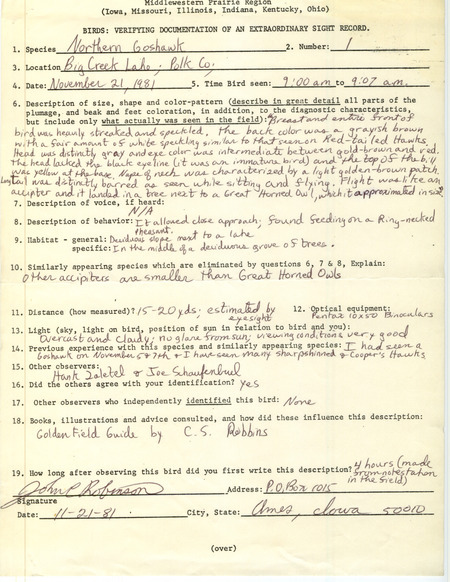 Middlewestern Prairie Region
(Iowa, Missouri, Illinois, Indiana, Kentucky, Ohio)
BIRDS: VERIFYING DOCUMENTATION OF AN EXTRAORDINARY SIGHT RECORD.
1. Species Northern Goshawk 2. Number: 1
3. Location Big Creek Lake; Polk Co.
4. Date: November 21, 1981 5. Time Bird seen: 9:00 am to 9:07 am.
6. Description of size, shape and color-pattern (describe in great detail all parts of the
plumage, and beak and feet coloration, in addition, to the diagnostic characteristics,
but include only what actually was seen in the field): Breast and entire front of
bird was heavily streaked and speckled. The back color was a grayish brown
with a fair amount of white speckling similar to that seen on Red-tailed Hawks.
Head was distinctly gray and eye color was intermediate between gold-brown and red.
The head lacked the black eyeline (it was an immature bird) and the top of the bill
was yellow at the base. Nape of neck was characterized by a light golden-brown patch.
Long tail was distinctly barred as seen while sitting and flying. Flight was like an
accipiter and it landed in a tree next to a Great Horned Owl, which it approximated in size.
7. Description of voice, if heard:
N/A
8. Description of behavior: It allowed close approach; found feeding on a Ring-necked
Pheasant.
9. Habitat - general: Deciduous slope next to a lake
specific: In the middle of a deciduous grove of trees.
10. Similarly appearing species which are eliminated by questions 6, 7 & 8, Explain:
Other accipiters are smaller than Great Horned Owls
11. Distance (how measured)? 15-20 yds; estimated by
eyesight
12. Optical equipment:
Pentax 10x50 Binoculars
13. Light (sky, light on bird, position of sun in relation to bird and you):
Overcast and cloudy; no glare from sun; viewing conditions very good
14. Previous experience with this species and similarly appearing species: I had seen a
Goshawk on November 5 & 7th & I have seen many sharpshinned & Cooper's Hawks
15. Other observers:
Hank Zaletel & Joe Schaufenbuel
16. Did the others agree with your identification? yes
17. Other observers who independently identified this bird: None
18. Books, illustrations and advice consulted, and how did these influence this description:
Golden Field Guide by C.S. Robbins
19. How long after observing this bird did you first write this description? 4 hours (made
from notes taken
in the field)
John P Robinson Address: P.O. Box 1015
Signature
Date: 11-21-81 City, State: Ames, Iowa 50010
(over)